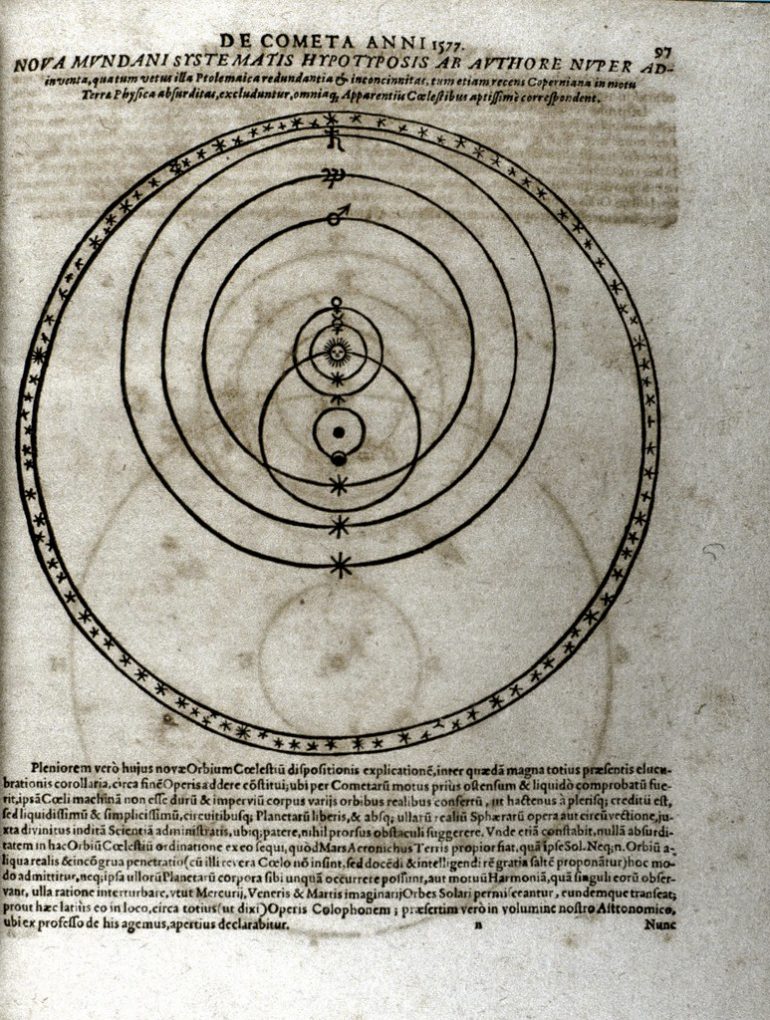 DE COMETA ANNI 1577.
97
NOVA MVNDANI SYSTEMATIS HYPOTYPOSIS AB AVTHORE NVPER AD-
inventa, qua tum vetus illa Ptolemaica redundantia & inconcinnitas, tum etiam recens Coperniana in motu
Terræ Physica absurditas, excluduntur, omniaq; Apparentiis Cœlestibus aptissimè correspondent.
Pleniorem verò hujus novæ Orbium Cœlestiū dispositionis explicationē, inter quædā magna totius præsentis elucu-
brationis corollaria, circa finē Operis addere cōstitui; ubi per Cometarū motus prius ostensum & liquidò comprobatū fue-
rit, ipsā Cœli machinā non esse durū & imperviū corpus varijs orbibus realibus confertū, ut hactenus à plerisq; creditū est,
sed liquidissimū & simplicissimū, circuitibusq; Planetarū liberis, & absq; ullarū realiū Sphærarū opera aut circūvectione, ju-
xta divinitus inditā Scientiā administratis, ubiq; patere, nihil prorsus obstaculi suggerere. Vnde etiā constabit, nullā absurdi-
tatem in hac Orbiū Cœlestiū ordinatione ex eo sequi, quod Mars Acronichus Terris propior fiat, quā ipse Sol. Neq; n. Orbiū a-
liqua realis & incōgrua penetratio (cū illi revera Cœlo nō insint, sed docēdi & intelligendi rē gratia saltē proponātur) hoc mo-
do admittitur, neq; ipsa ullorū Planetarū corpora sibi unquā occurrere possunt, aut motuū Harmoniā, quā singuli eorū obser-
vant, ulla ratione interturbare, vtut Mercurij, Veneris & Martis imaginarij Orbes Solari permisceantur, eundemque transeāt;
prout hæc latiùs eo in loco, circa totius (ut dixi) Operis Colophonem; præsertim verò in volumine nostro Astronomico,
ubi ex professo de his agemus, apertius declarabitur.
n
Nunc